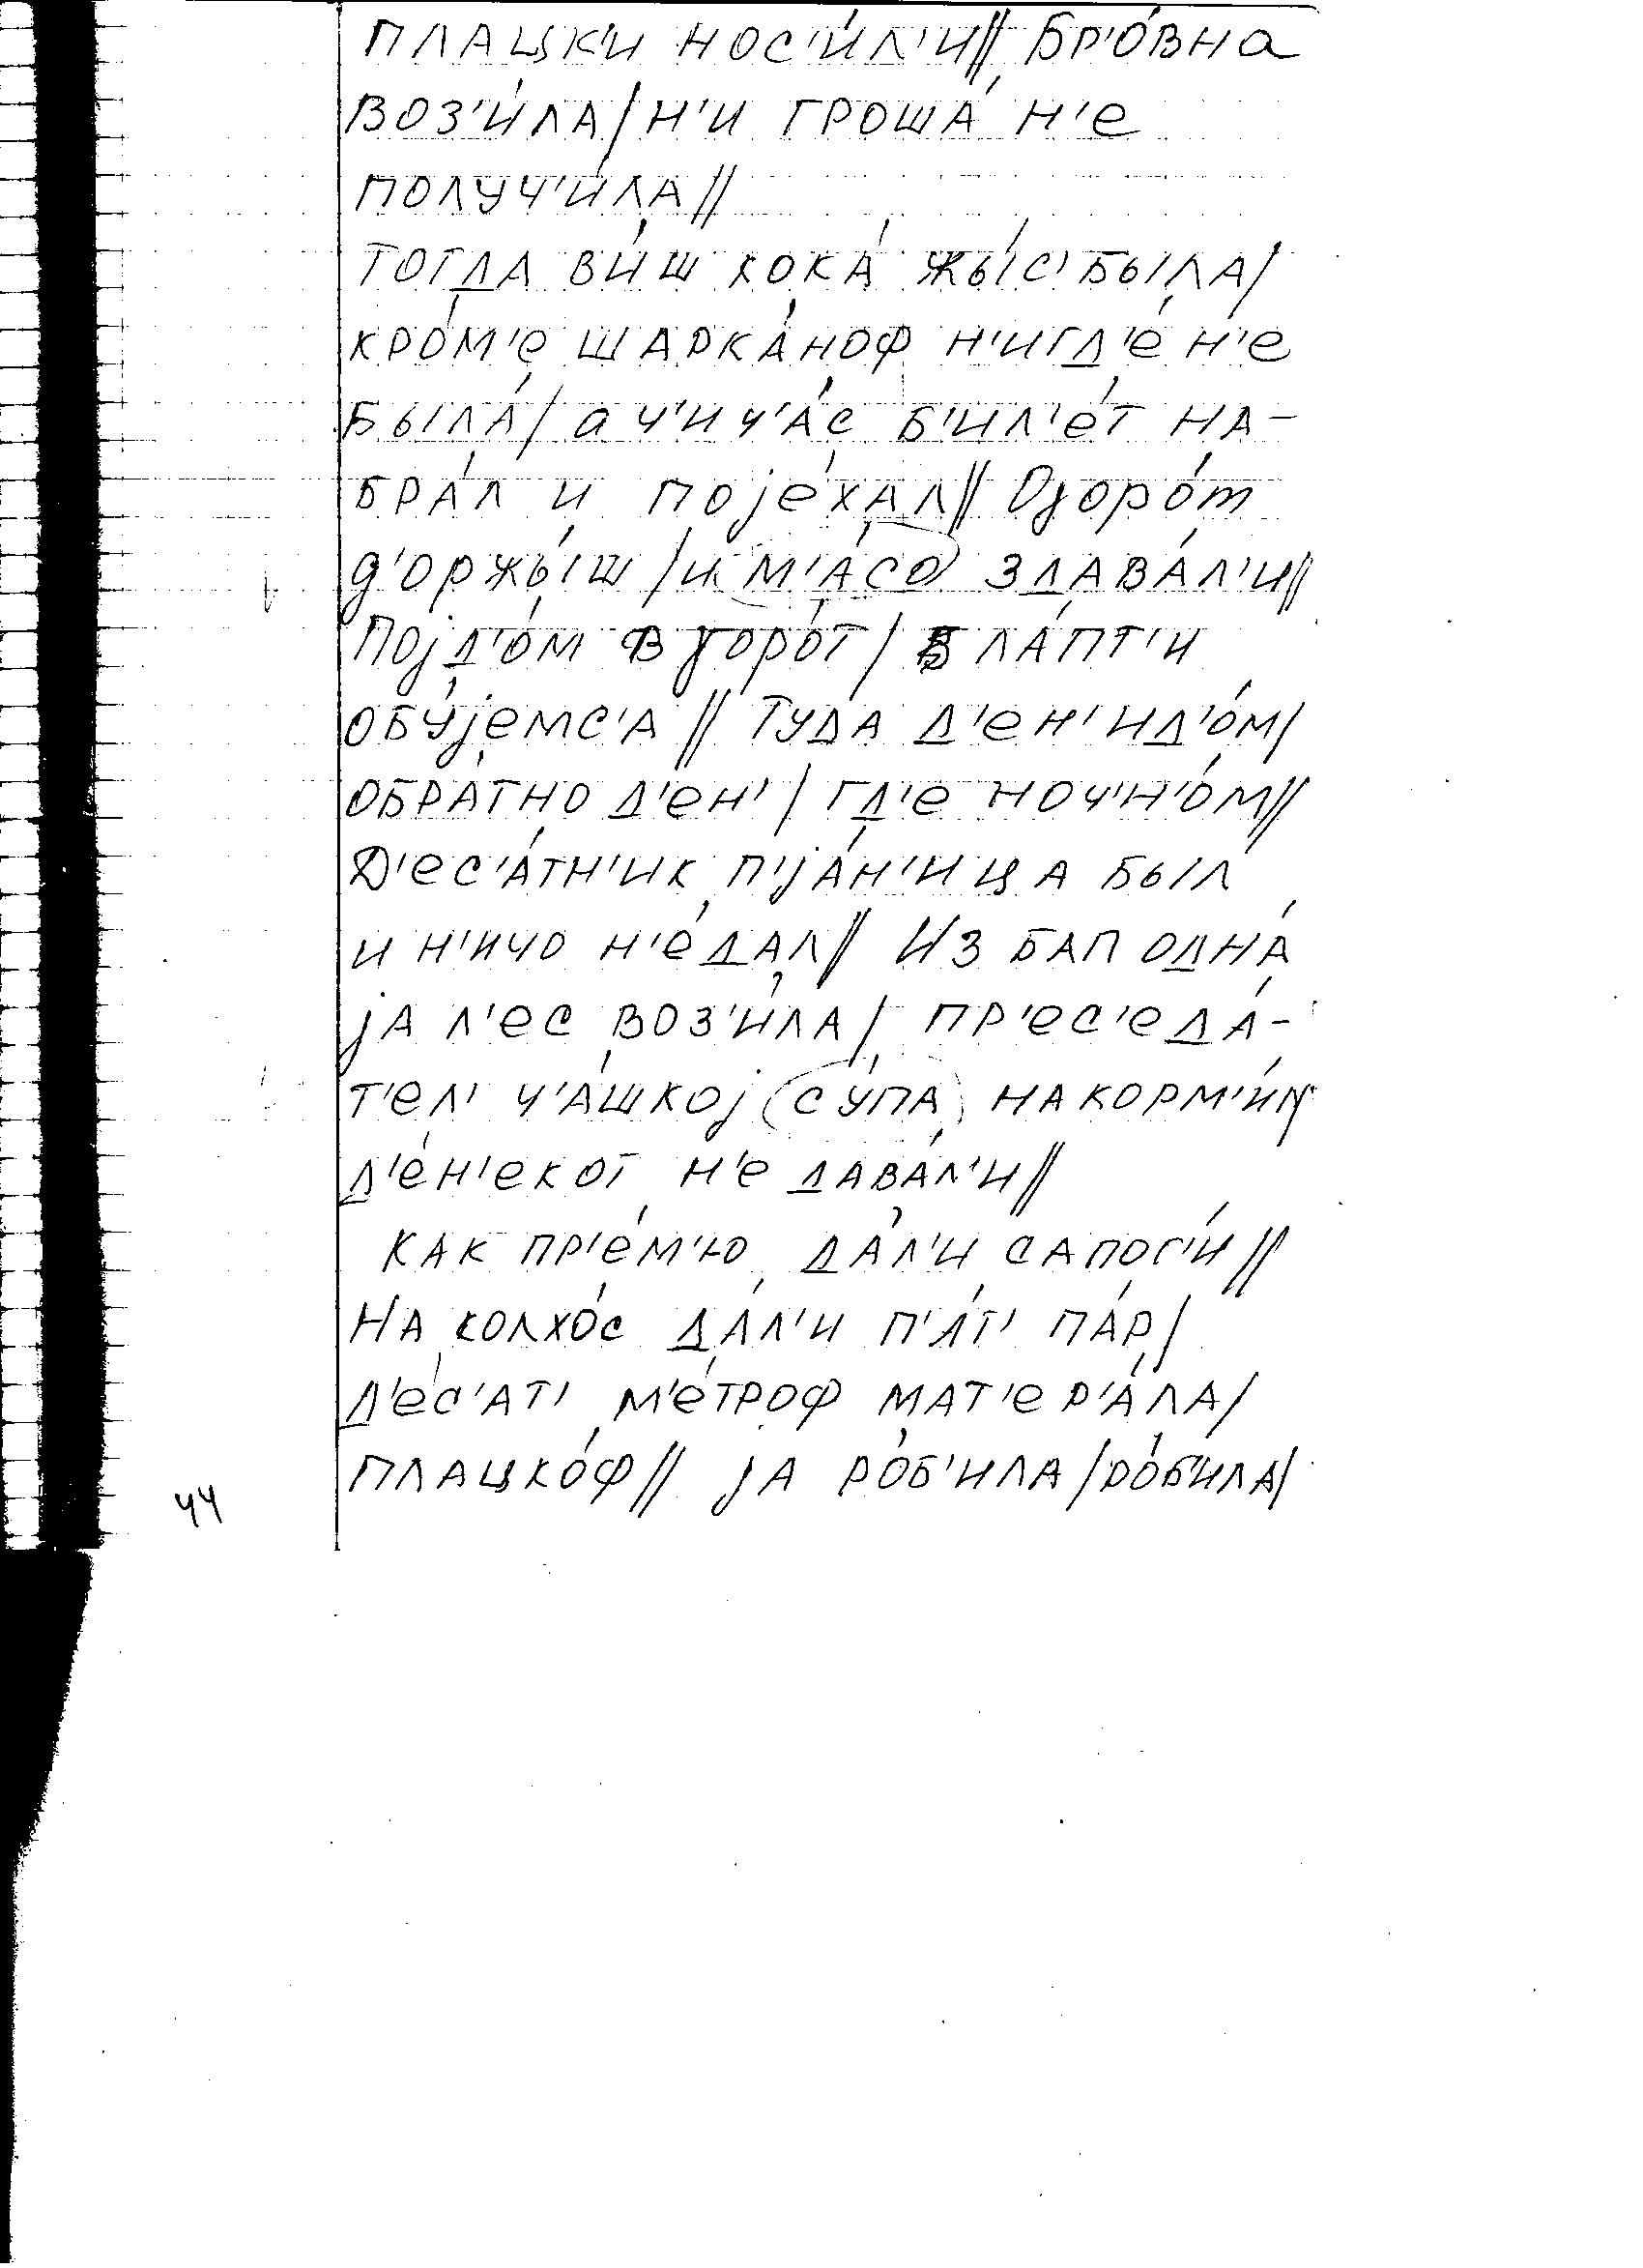 плацк'и нос'и́л'и// Бр'о́вна
воз'и́ла/ н'и гроша́ н'е
получ'и́ла//
Тогда ви́ш кока́ жы́с' была/
кро́м'е шарка́ноф н'игд'е́ н'е
была́/ а ч'ич'а́с б'ил'е́т на-
бра́л и пойе́хал// Огоро́т
д'оржы́ш /и м'а́со здава́л'и//
Појд'о́м в горо́т/ в ла́пт'и
обу́јемс'а// Туда д'ен' ид'о́м/
обра́тно д'ен'/ гд'е ноч'н'о́м//
Д'ес'а́тн'ик п'ја́н'ица был
и н'ичо н'е́ дал// Из бап одна́
ја л'ес воз'и́ла/ пр'ес'еда́-
т'ел' ч'а́шкој су́па накорм'и́л/
д'е́н'екот н'е дава́л'и//
Как пр'е́м'ю да́л'и сапог'и́//
На колхо́с да́л'и п'ат' па́р/
д'е́с'ат' м'е́троф мат'ер'а́ла/
плацко́ф// ја ро́б'ила/ ро́б'ила/
44